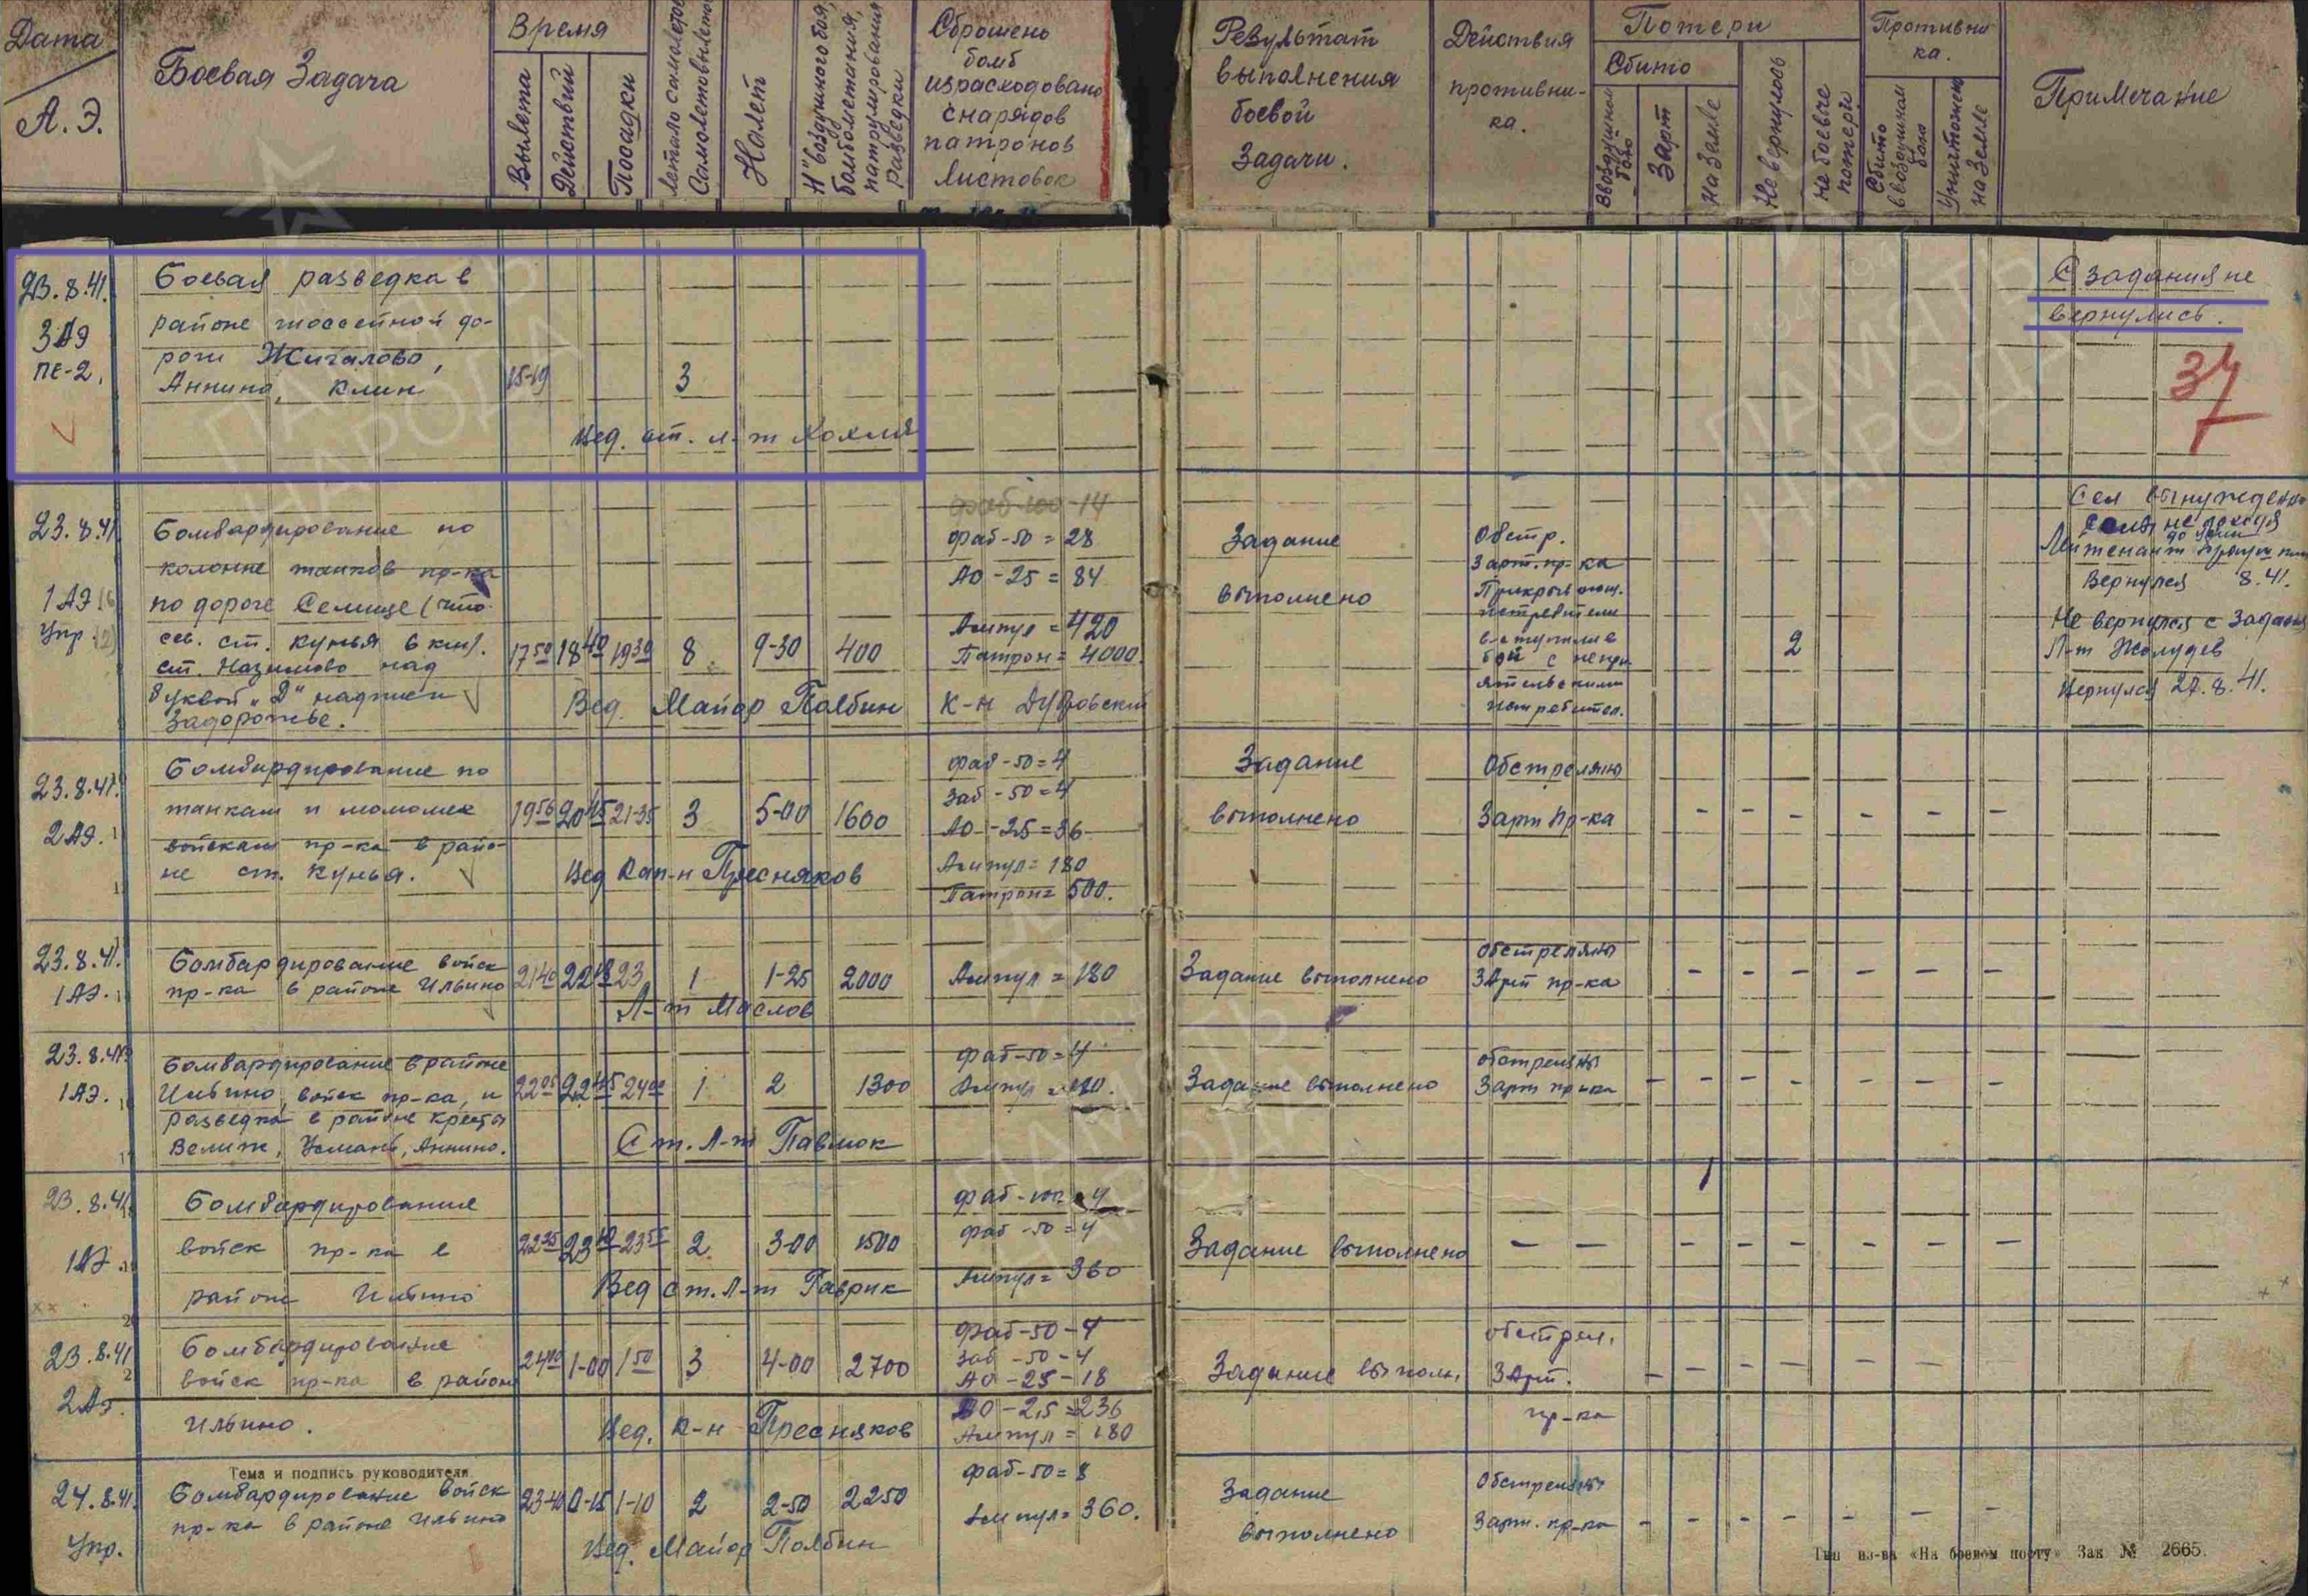 Дата
А.Э.
Боевая Задача
Время
Вылета
Действий
Посадки
Летало самолетов
Самолетовылетов
Налет
"Н" воздушного боя,
бомбометания,
патрулирования
Разведки
Сброшено
бомб
израсходовано
снарядов
патронов
Листовок
Результат
выполнения
боевой
Задачи.
Действия
противни-
ка.
Потери
Сбито
В воздушном
бою
Зарт
На Земле
Не вернулось
Не боевые
потери
Противни-
ка.
Сбито
в воздушном
бою
Уничтожено
на Земле
Примечание
23.8.41.
3АЭ
ПЕ-2.
Боевая разведка в
районе шоссейной до-
роги Жигалово,
Аннино, Клин
15-19
3
Вед. ст. л-т
С задания не
вернулись.
37
23.8.41
1АЭ
Упр.
Бомбардирование по
колонне танков пр-ка
по дороге Селище (что
сев. ст. Кунья 6 км).
ст. Назимово над
буквой "Д" надписи
Задорожье.
17 50 18 40 19 30 8 9-30 400
Вед. Майор Полбин
фаб-100-14
фаб-50 = 28
АО-25 = 84
Ампул = 420
Патрон = 4000.
К-н Дубровский
Задание
выполнено
Обстр.
Зарт. пр-ка
Прикрывающ.
истребители
вступили в
бой с непри
ятельскими
истребител.
2
Сел вынужденно
не доходя
до
Лейтенант
Вернулся 8.41.
Не вернулся с задания
Л-т Жолудев
Вернулся 27.8.41.
23.8.41.
2АЭ.
Бомбардирование по
танкам и мотомех
войскам пр-ка в райо-
не ст. Кунья.
19 56 20 45 21-35 3 5-00 1600
Вед Кап-н Пресняков
фаб-50=4
Заб-50=4
АО-25=36
Ампул=180
Патрон=500.
Задание
выполнено
Обстреляны
Зарт пр-ка
- - - - - -
23.8.41.
1АЭ.
Бомбардирование войск
пр-ка в районе Ильино
21 40 22 18 23 1 1-25 2000
Л-т Маслов
Ампул = 180
Задание выполнено
Обстреляны
ЗАрт пр-ка
- - - - - - -
23.8.41
1АЭ.
Бомбардирование в районе
Ильино, войск пр-ка, и
разведка в районе Кресты
Велиж, Усмань, Аннино.
22 05 22 45 24 00 1 2 1300
Ст. Л-т Павлюк
фаб-50=4
Ампул = 180.
Задание выполнено
обстреляны
Зарт пр-ка
- - - - - - - -
23.8.41
1АЭ.
Бомбардирование
войск пр-ка в
районе Ильино
22 25 23 10 23 55 2 3-00 1500
Вед ст. Л-т Гаврик
фаб-100=4
фаб-50=4
Ампул=360
Задание выполнено
- - - - - - - - -
23.8.41
2АЭ.
Бомбардирование
войск пр-ка в район
Ильино.
24 10 1-00 1 50 3 4-00 2700
Вед. К-н Пресняков
фаб-50-4
Заб-50-4
АО-25-18
АО-2,5=236
Ампул = 180
Задание выполн,
обстрел.
ЗАрт.
пр-ка
- - - - - - -
Тема и подпись руководителя
24.8.41.
Упр.
Бомбардирование войск
пр-ка в районе Ильино
23-40 0-15 1-10 2 2-50 2250
Вед. Майор Полбин
фаб-50=8
Ампул=360.
Задание
выполнено
Обстреляны
Зарт. пр-ка
- - - - - - -
Тип из-ва «На боевом посту» Зак № 2665.
ПАМЯТЬ
НАРОДА